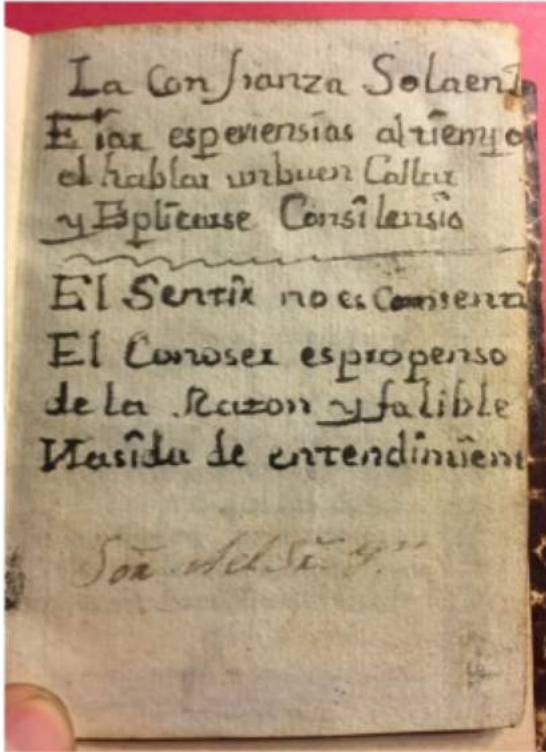 La Confianza Solaen
esperiensias altiempo
el hablar unbuen Callar
y Esplicarse Consilensio
El Sentir no es Consenti
El Conoser espropenso
de la Razon y falible
Nasida de entendimient